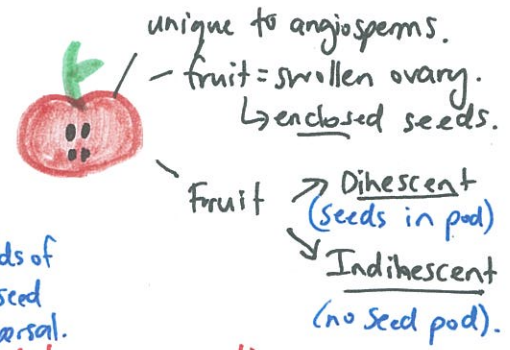 unique to angiosperms.
fruit = swollen ovary.
↳ enclosed seeds.
Fruit → Dihescent
(seeds in pod)
↘ Indihescent
(no seed pod).
ds of
seed
ersal.